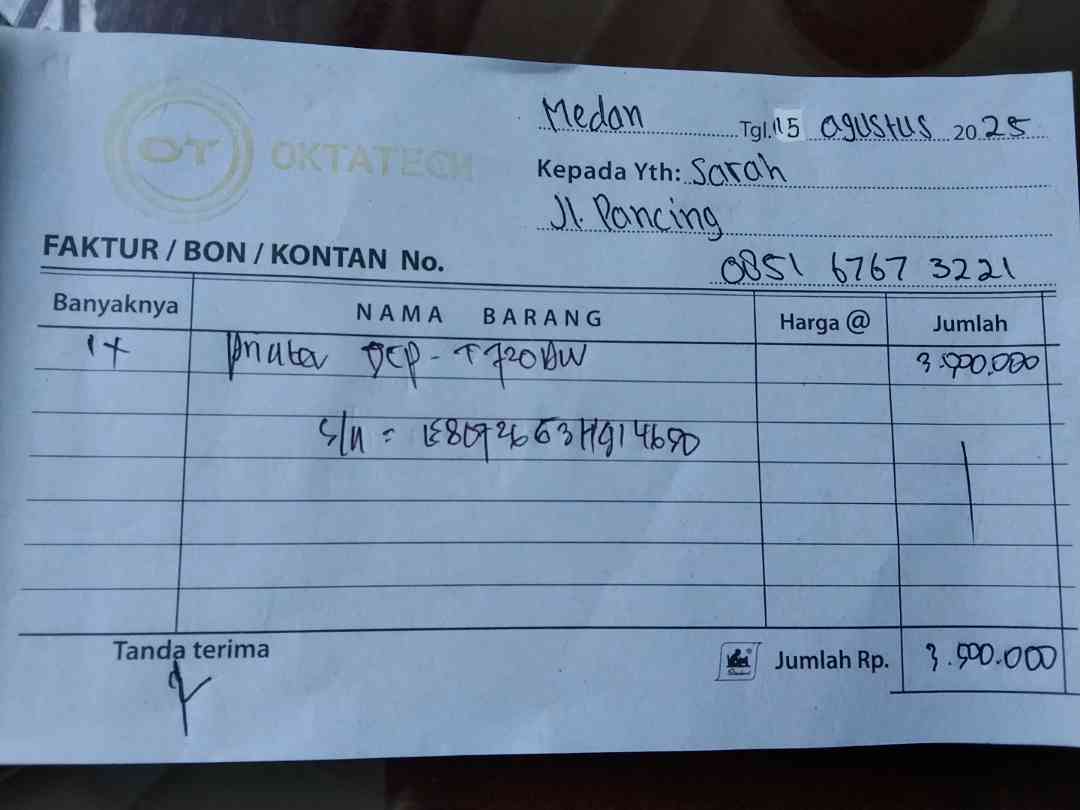 Medan Tgl. 15 agustus 2025
OT OKTATECH
Kepada Yth: Sarah
Jl. Pancing
FAKTUR / BON / KONTAN No.
0851 6767 3221
Banyaknya NAMA BARANG Harga @ Jumlah
1x Printer DCP-T720DW 3.500.000
S/N =
Tanda terima
Jumlah Rp. 3.500.000